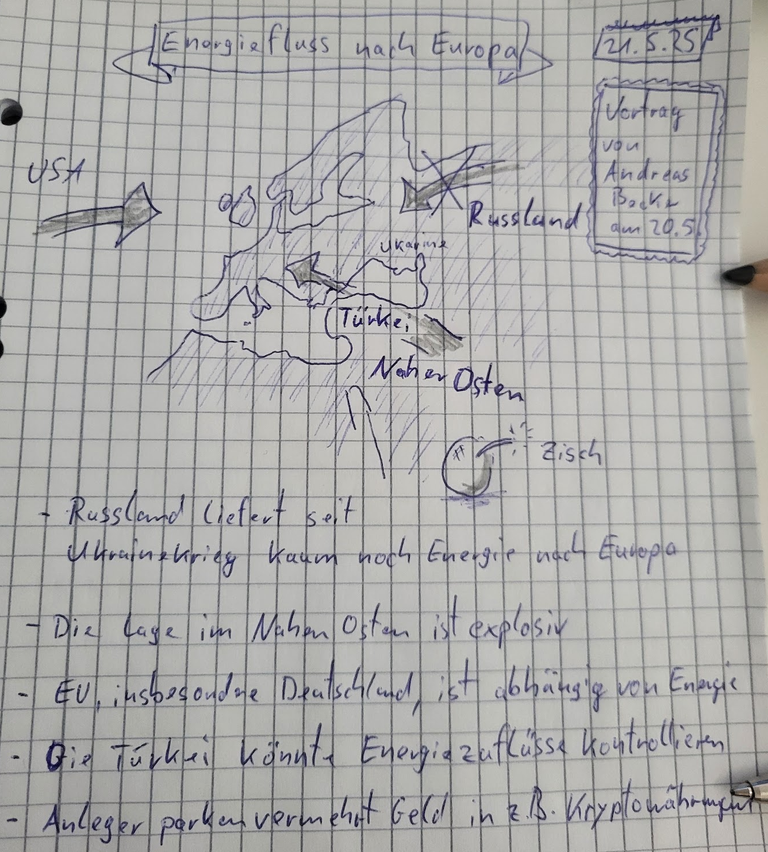 Energiefluss nach Europa
21.5.25
Vortrag
von
Andreas
am 20.5.
USA
Russland
Ukraine
Türkei
Naher Osten
Zisch
- Russland liefert seit
Ukrainekrieg kaum noch Energie nach Europa
- Die Lage im Nahen Osten ist explosiv
- EU, insbesondere Deutschland, ist abhängig von Energie
- Die Türkei könnte Energiezuflüsse kontrollieren
- Anleger parken vermehrt Geld in z.B. Kryptowährungen